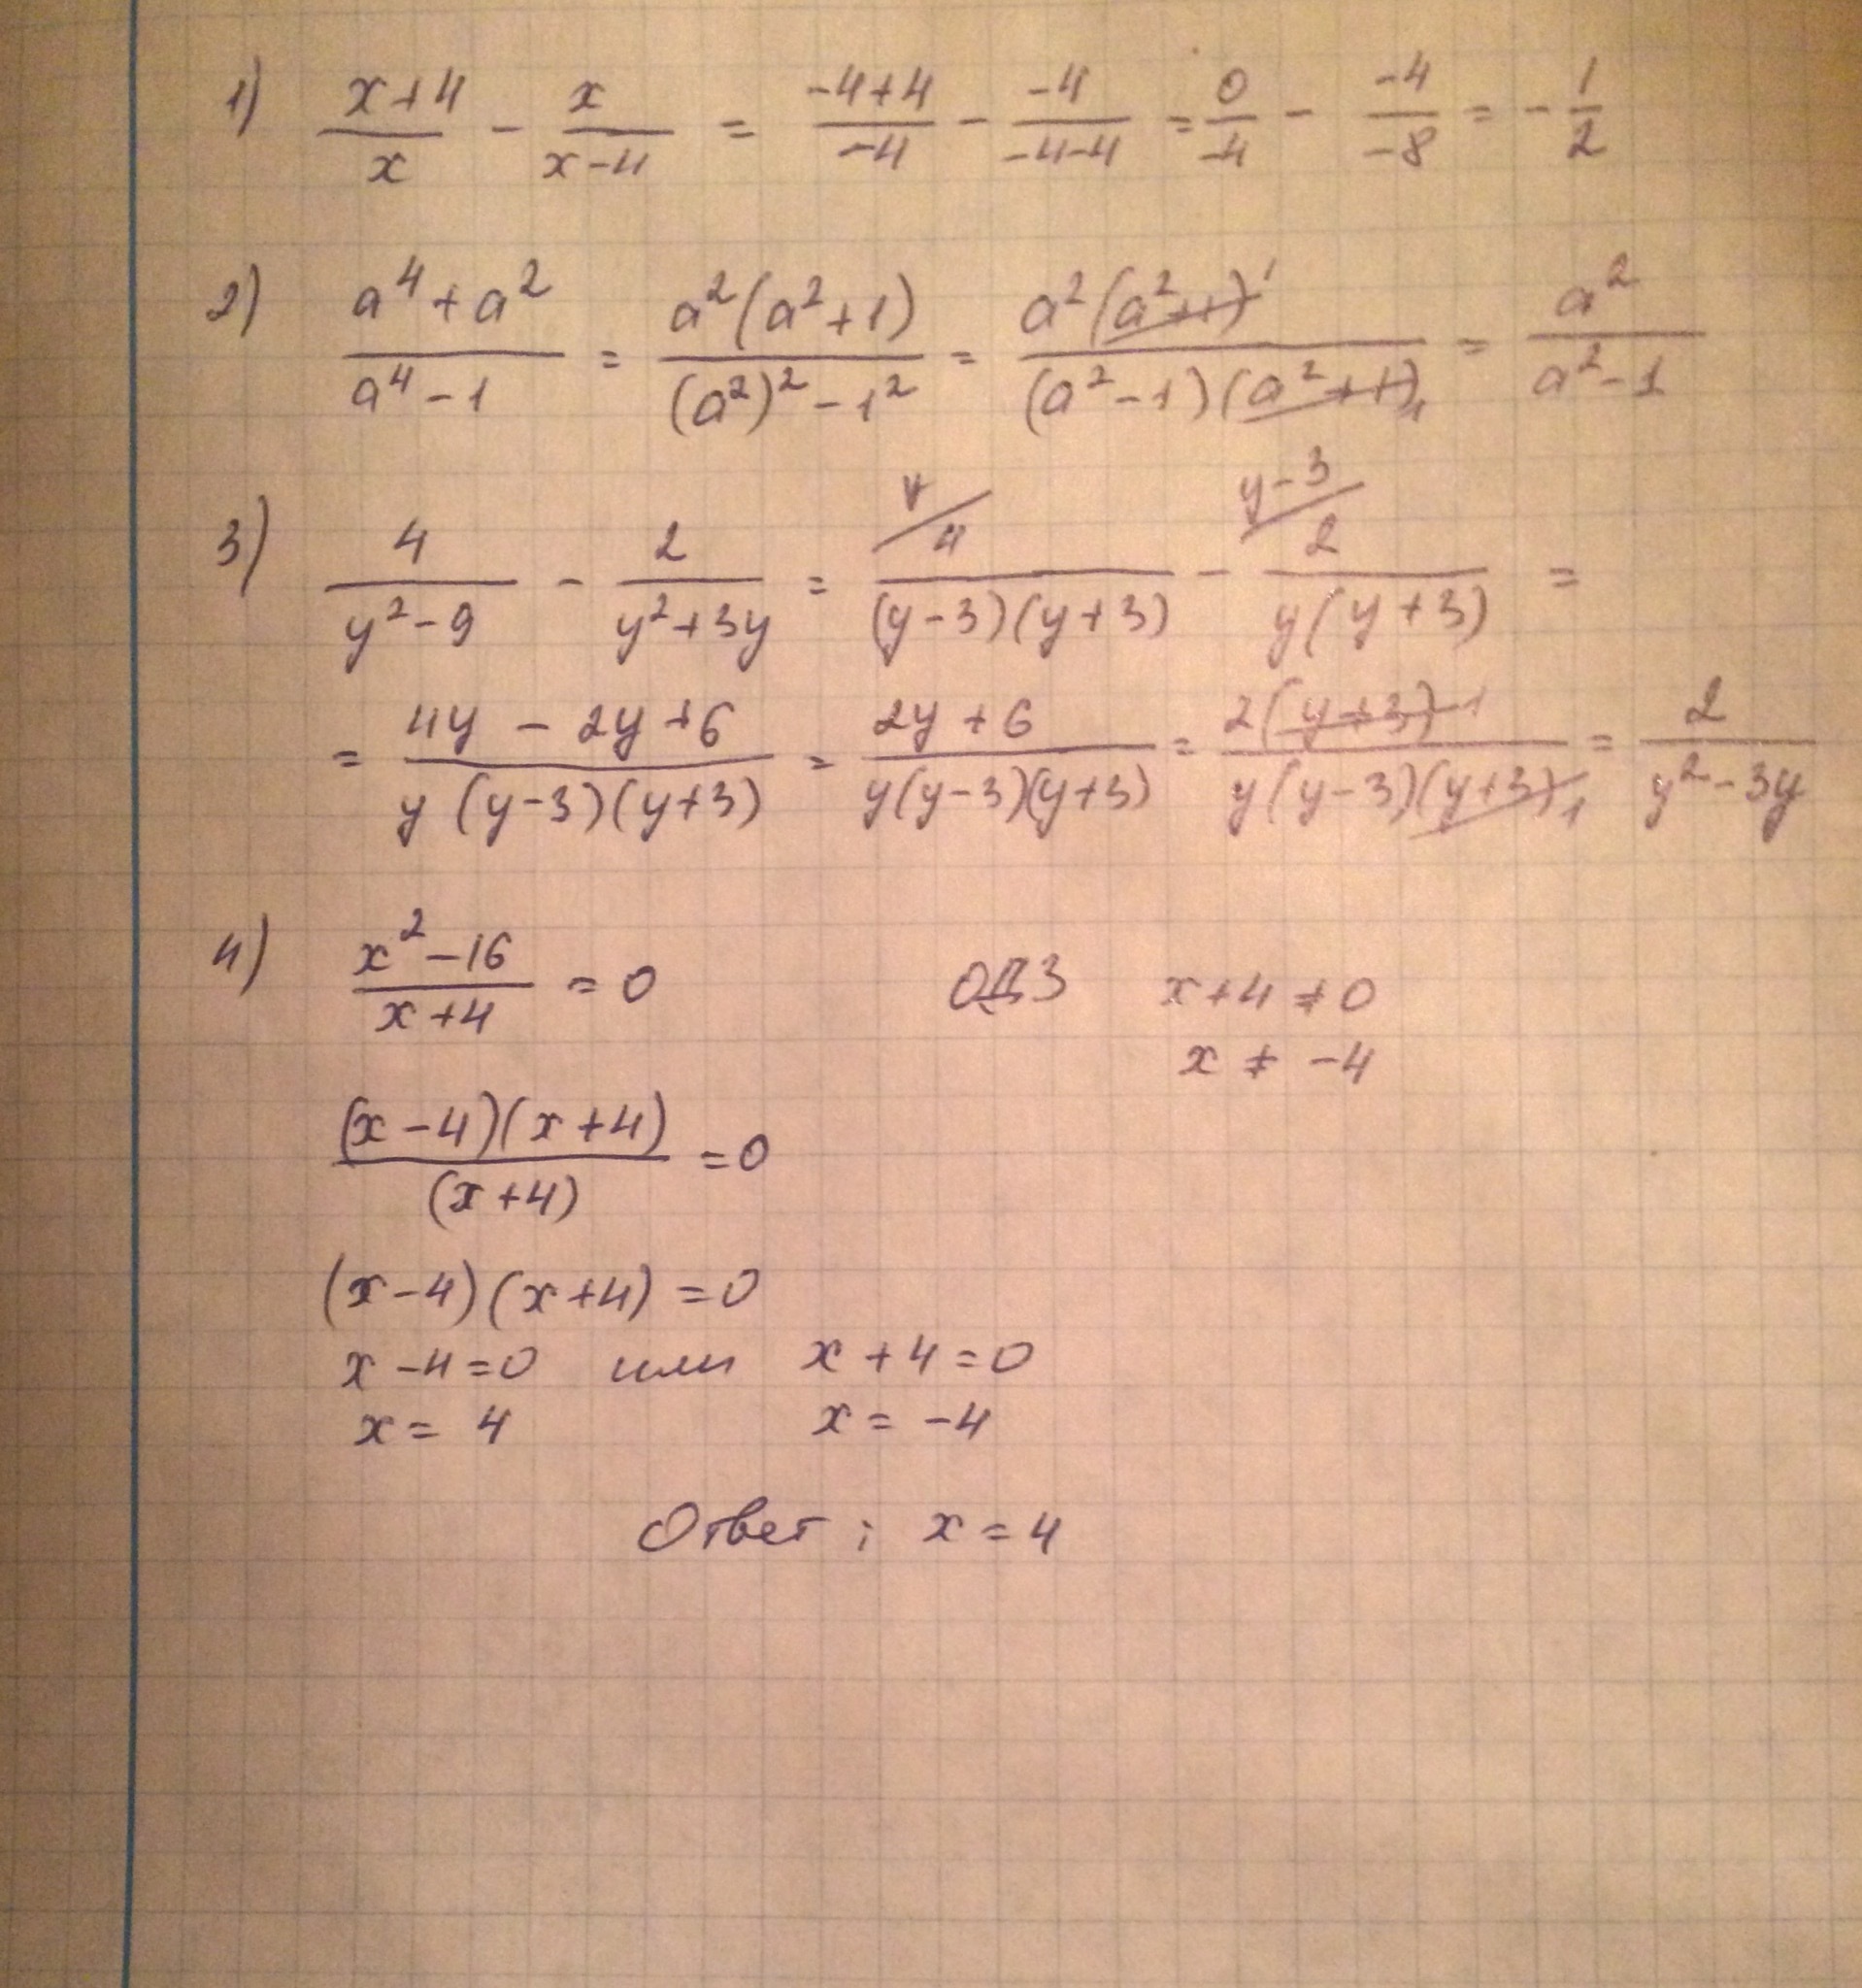 1) (x+4)/x - x/(x-4) = (-4+4)/(-4) - (-4)/(-4-4) = 0/(-4) - (-4)/(-8) = -1/2
2) (a⁴+a²)/(a⁴-1) = a²(a²+1)/((a²)²-1²) = a²(a²+1)¹/((a²-1)(a²+1)₁) = a²/(a²-1)
3) 4/(y²-9) - 2/(y²+3y) = y/ 4/((y-3)(y+3)) - y-3/ 2/(y(y+3)) =
= (4y-2y+6)/(y(y-3)(y+3)) = (2y+6)/(y(y-3)(y+3)) = 2(y+3)¹/(y(y-3)(y+3)₁) = 2/(y²-3y)
4) (x²-16)/(x+4) = 0 ОДЗ x+4≠0
x ≠ -4
(x-4)(x+4)/(x+4) = 0
(x-4)(x+4)=0
x-4=0 или x+4=0
x = 4 x = -4
Ответ: x = 4